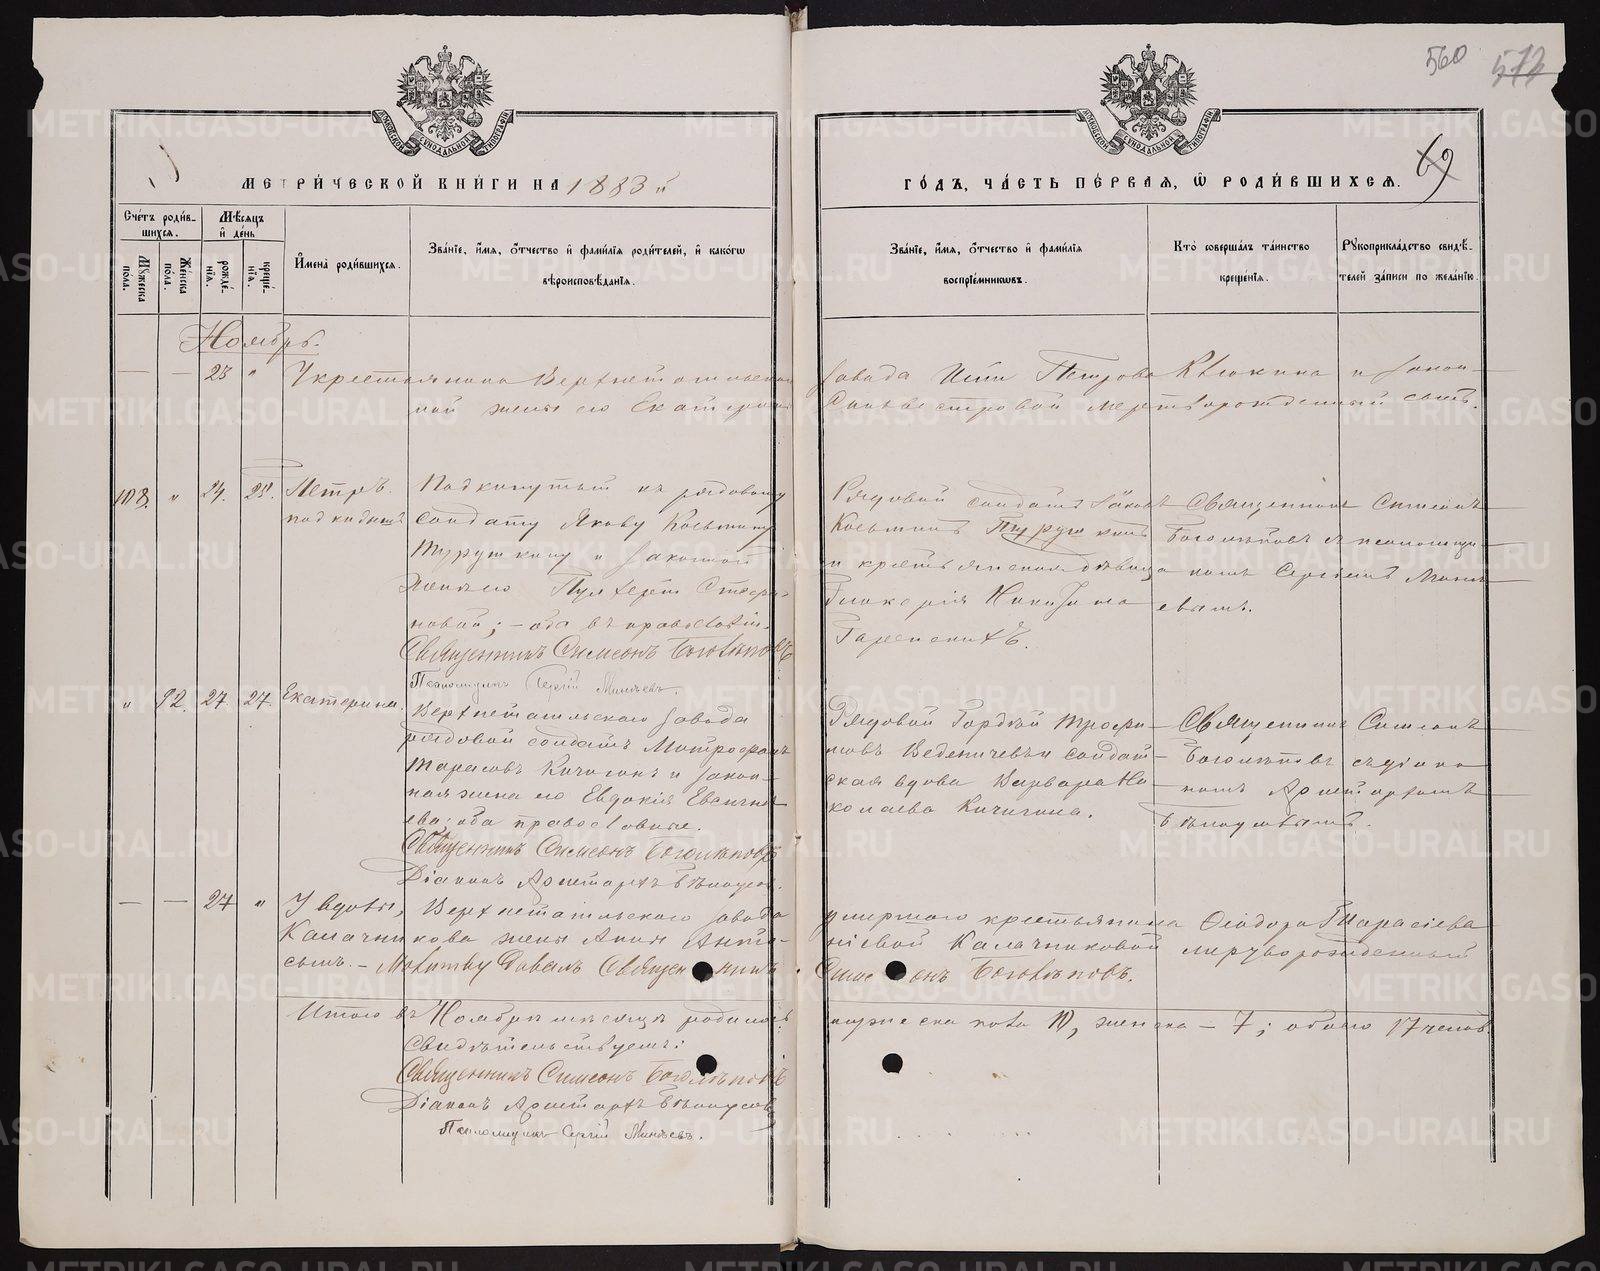 560 572
69
МЕТРИ́ЧЕСКОЙ КНИ́ГИ НА 1883 й
ГО́ДЪ, ЧА́СТЬ ПЕ́РВАЯ, Ѡ РОДИ́ВШИХСЯ.
Сче́тъ роди́в-шихся.
Мѣ́сяцъ и҆ де́нь
Мꙋ́жеска по́ла.
Же́нска по́ла.
рожде́-нїѧ.
креще́-нїѧ.
И҆мена̀ роди́вшихсѧ.
Зва́нїе, и҆́мѧ, ѻ҆́тчество и҆ фами́лїѧ роди́телей, и҆ како́гѡ
вѣроисповѣ́данїѧ.
Зва́нїе, и҆́мѧ, ѻ҆́тчество и҆ фами́лїѧ
воспрїе́мникѡвъ.
Кто̀ соверша́лъ та́инство
креще́нїѧ.
Рꙋкоприкла́дство свидѣ́-
телей за́писи по жела́нїю.
Ноябрь.
— — 23 " У крестьянина Верхнетагильскаго завода Петрова и закон-
ной жены его Екатерины Сильвестровой мертворожденный сынъ.
108 " 24. 25. Петръ
подкидышъ
Подкинутый къ рядовому
солдату Якову Козьмину
и законной
женѣ его Пульхеріи
оба въ православіи.
Священникъ Симеонъ Боголѣповъ
Псаломщикъ Сергій Минѣевъ.
Рядовой солдатъ Іаковъ
Козьминъ
и крестьянская дѣвица
Гликерія
Священникъ Симеонъ
Боголѣповъ и псаломщи-
комъ Сергіемъ Минѣ-
евымъ.
" 92. 27. 27. Екатерина.
Верхнетагильскаго завода
рядовой солдатъ Митрофанъ
Тарасовъ Кичигинъ и закон-
ная жена его Евдокія
ева; оба православные.
Священникъ Симеонъ Боголѣповъ
Діаконъ Аристархъ Бѣлоусовъ.
Рядовой Гордѣй Трофи-
мовъ и солдат-
ская вдова Варвара Ни-
колаева Кичигина.
Священникъ Симеонъ
Боголѣповъ съ діако-
номъ Аристархомъ
Бѣлоусовымъ.
— — 27 " У вдовы, Верхнетагильскаго завода умершаго крестьянина Ѳеодора Тарасіева
Калачникова жены Анны Калачниковой мертворожденный
сынъ. – Молитву давалъ Священникъ Симеонъ Боголѣповъ.
Итого въ Ноябрѣ мѣсяцѣ родилось мужеска пола 10, женска – 7; обоего 17 челов.
Свидѣтельствуемъ:
Священникъ Симеонъ Боголѣповъ
Діаконъ Аристархъ Бѣлоусовъ
Псаломщикъ Сергій Минѣевъ.
METRIKI.GASO-URAL.RU